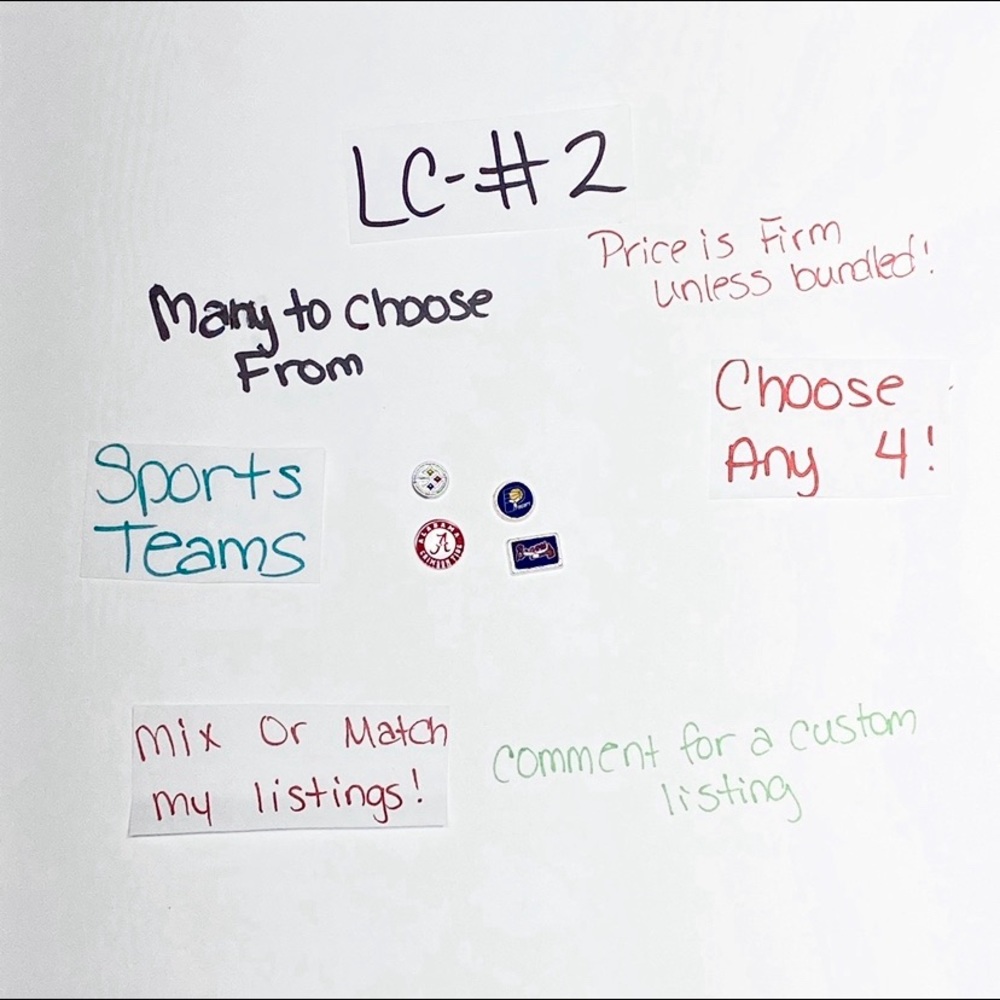 LC-#2
Price is Firm
unless bundled!
Many to choose
From
Choose
Any 4!
Sports
Teams
ALABAMA
A
CRIMSON TIDE
Braves
Mix Or Match
my listings!
comment for a custom
listing